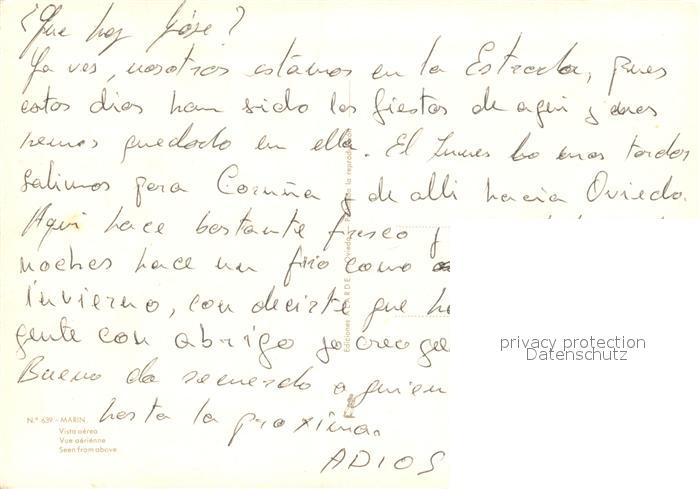 ¿Que hay Jóse?
Ya ves, nosotros estamos en la Estrada, pues
estos dias han sido las fiestas de aqui y nos
hemos quedado en ella. El Lunes lo mas tardar
salimos para Coruña y de alli hacia Oviedo.
Aqui hace bastante fresco y
noches hace un frio como
invierno, con decirte que
gente con abrigo yo creo que
Bueno da recuerdo a quien
hasta la proxima.
ADIOS
N.º 639 - MARIN.
Vista aérea
Vue aérienne
Seen from above
privacy protection
Datenschutz